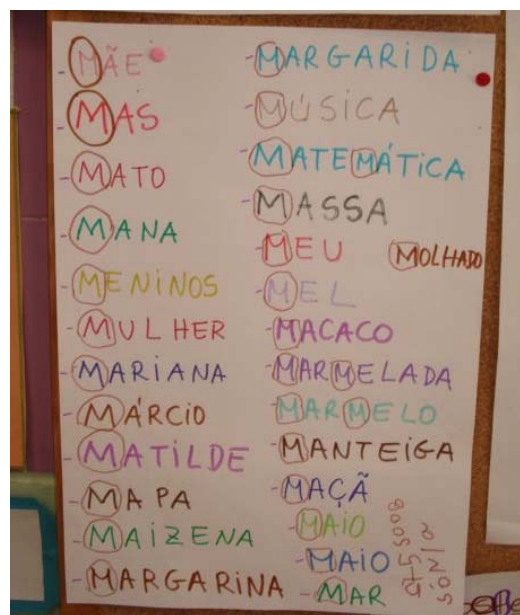 - MÃE
- MAS
- MATO
- MANA
- MENINOS
- MULHER
- MARIANA
- MÁRCIO
- MATILDE
- MAPA
- MAIZENA
- MARGARINA
- MARGARIDA
- MÚSICA
- MATEMÁTICA
- MASSA
- MEU
MOLHADO
- MEL
- MACACO
- MARMELADA
- MARMELO
- MANTEIGA
- MAÇÃ
- MAIO
- MAIO
- MAR
SÓNIA